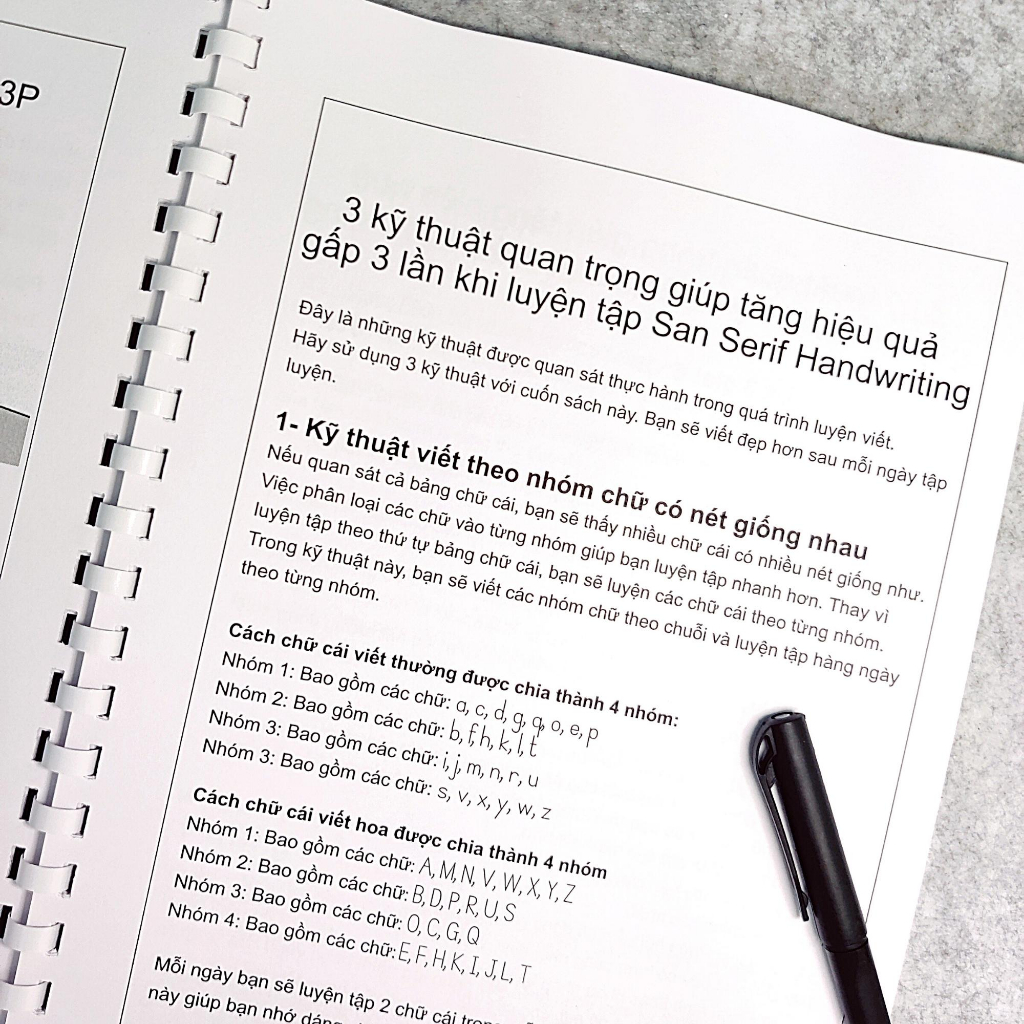 3P
3 kỹ thuật quan trọng giúp tăng hiệu quả
gấp 3 lần khi luyện tập San Serif Handwriting
Đây là những kỹ thuật được quan sát thực hành trong quá trình luyện viết.
Hãy sử dụng 3 kỹ thuật với cuốn sách này. Bạn sẽ viết đẹp hơn sau mỗi ngày tập
luyện.
1- Kỹ thuật viết theo nhóm chữ có nét giống nhau
Nếu quan sát cả bảng chữ cái, bạn sẽ thấy nhiều chữ cái có nhiều nét giống như.
Việc phân loại các chữ vào từng nhóm giúp bạn luyện tập nhanh hơn. Thay vì
luyện tập theo thứ tự bảng chữ cái, bạn sẽ luyện các chữ cái theo từng nhóm.
Trong kỹ thuật này, bạn sẽ viết các nhóm chữ theo chuỗi và luyện tập hàng ngày
theo từng nhóm.
Cách chữ cái viết thường được chia thành 4 nhóm:
Nhóm 1: Bao gồm các chữ: a, c, d, g, q, o, e, p
Nhóm 2: Bao gồm các chữ: b, f, h, k, l, t
Nhóm 3: Bao gồm các chữ: i, j, m, n, r, u
Nhóm 3: Bao gồm các chữ: s, v, x, y, w, z
Cách chữ cái viết hoa được chia thành 4 nhóm
Nhóm 1: Bao gồm các chữ: A, M, N, V, W, X, Y, Z
Nhóm 2: Bao gồm các chữ: B, D, P, R, U, S
Nhóm 3: Bao gồm các chữ: O, C, G, Q
Nhóm 4: Bao gồm các chữ: E, F, H, K, I, J, L, T
Mỗi ngày bạn sẽ luyện tập 2 chữ cái
này giúp bạn nhớ